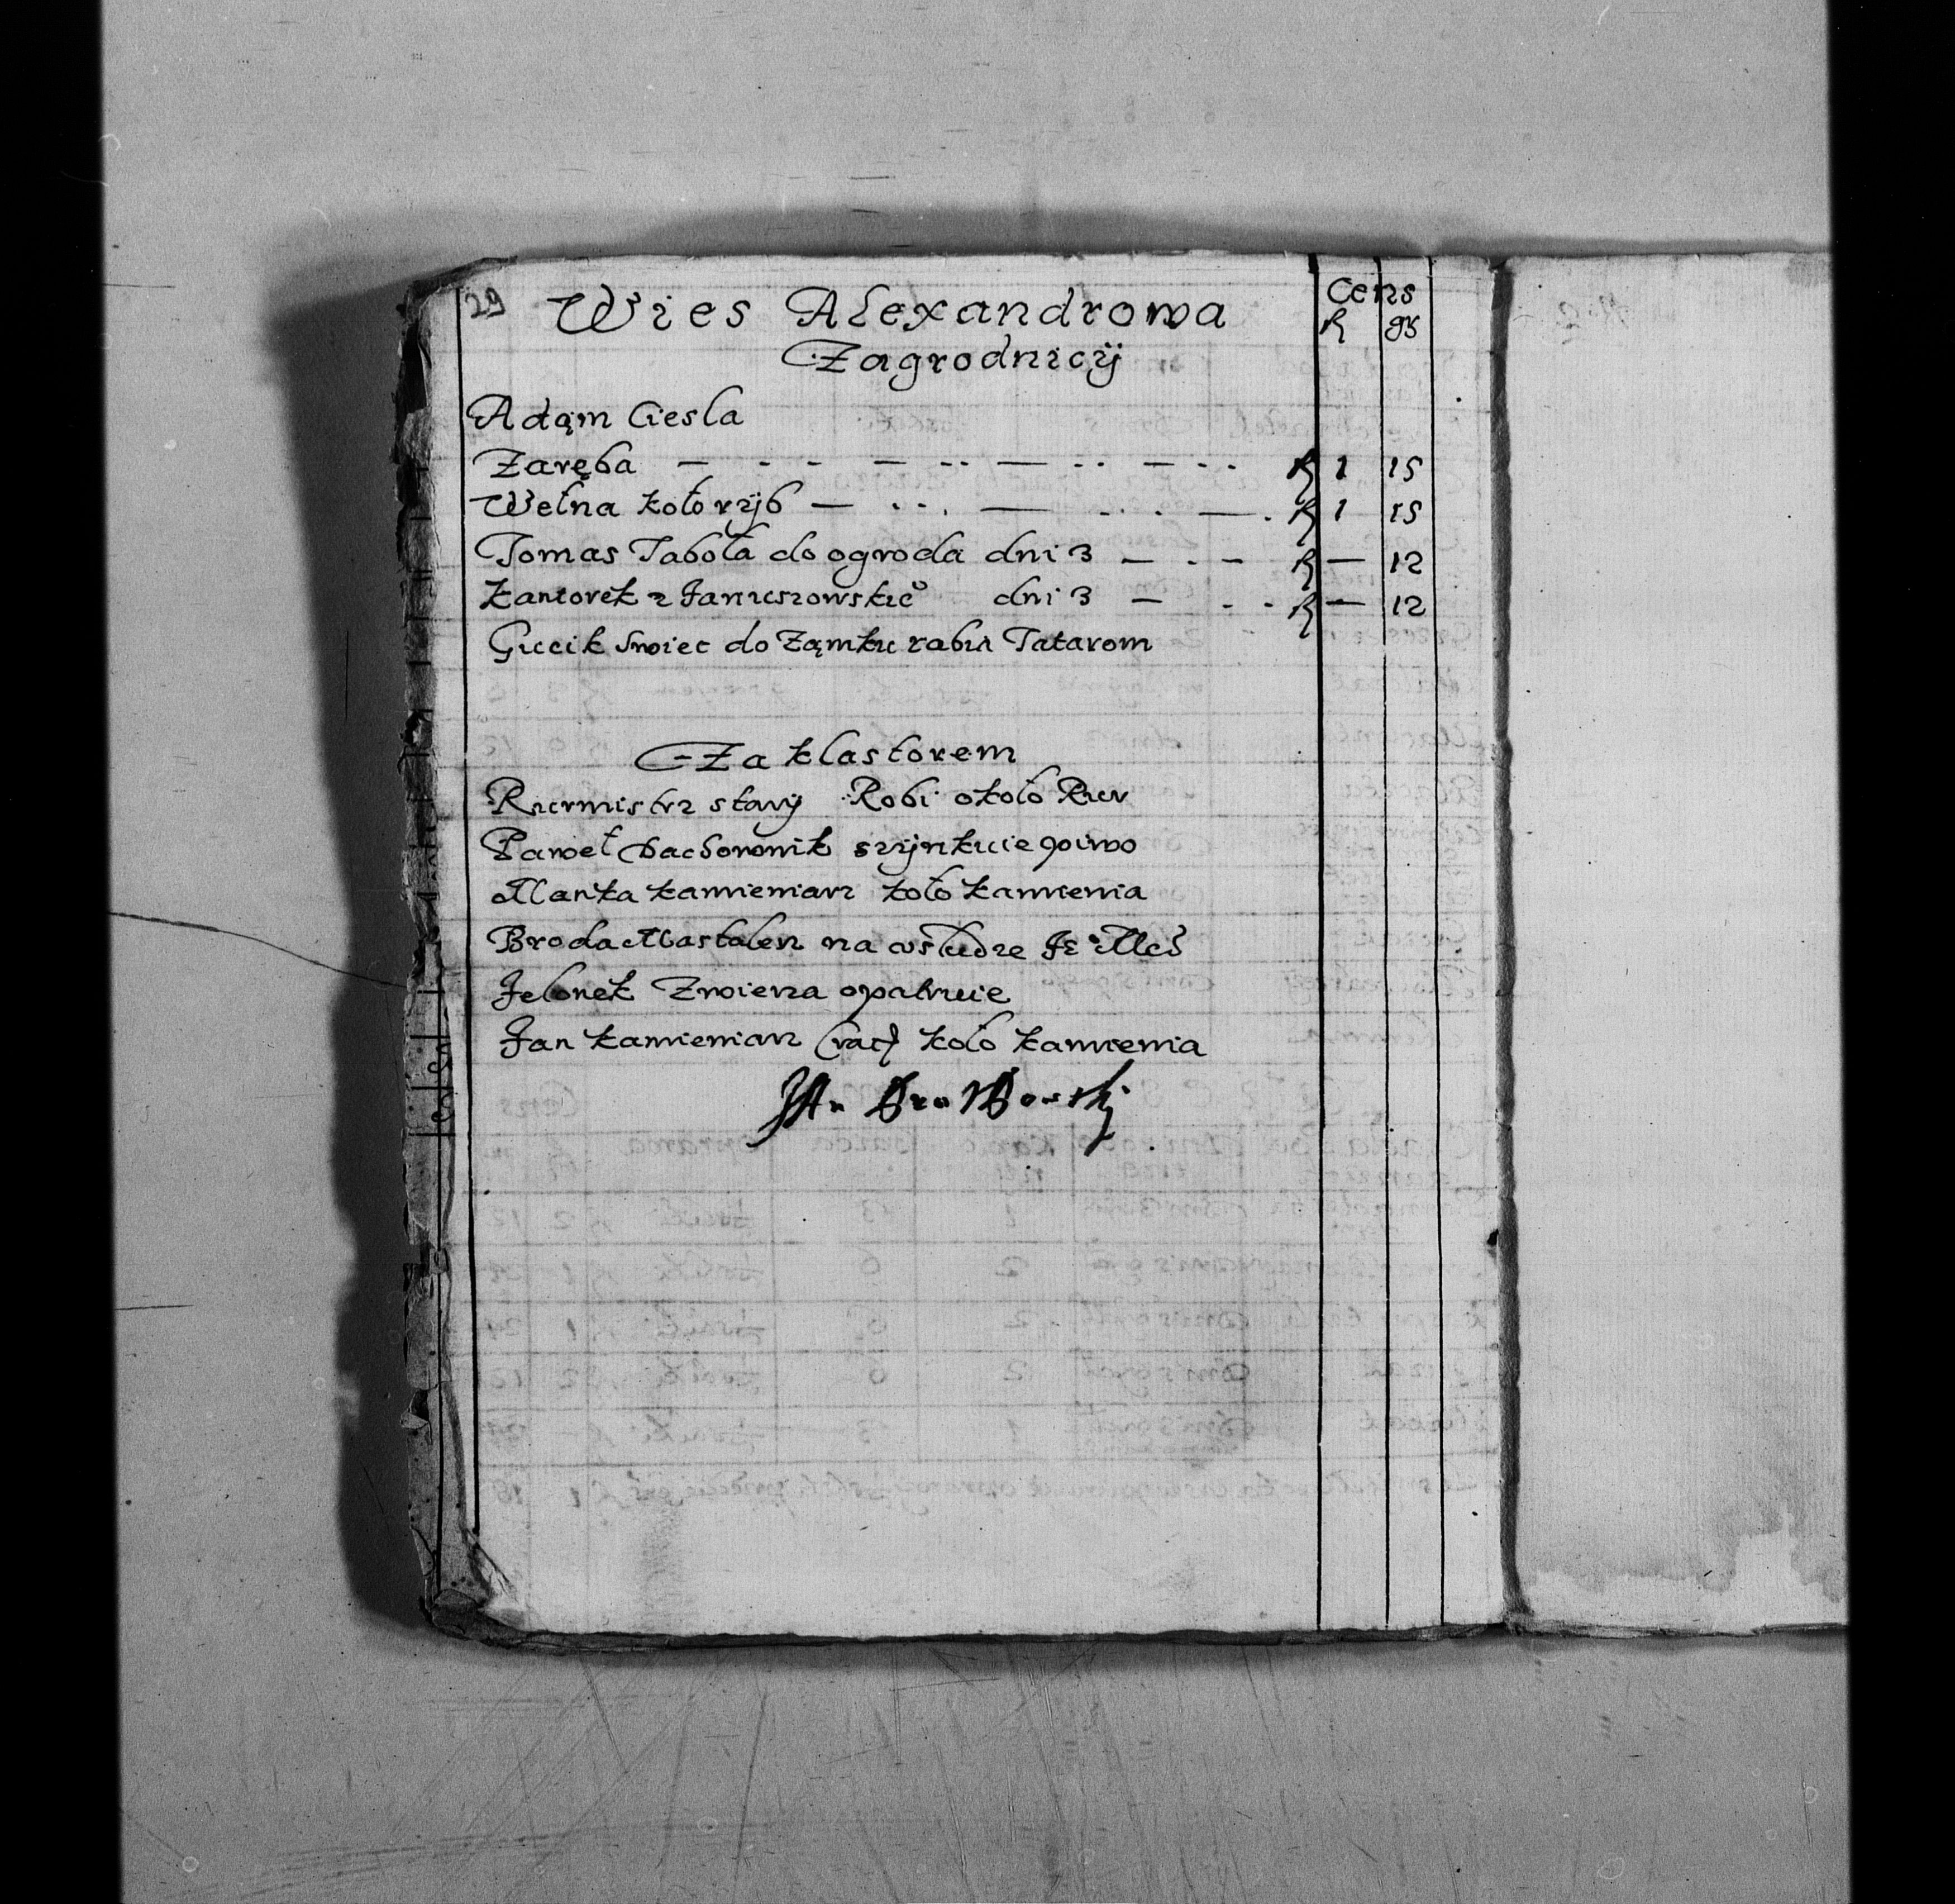 29 Wies Alexandrowa Cens
Zagrodnicÿ fl gr
Adąm Ciesla
Zaręba — - - — - - — - - — - - fl 1 15
Wełna koło rÿb — - - - — - - - — - fl 1 15
Tomas Taboła do ogroda dni 3 — - - fl — 12
Kantorek z Januszowskie° dni 3 — - - fl — 12
Gucik Swiec do Ząmku rabia Tatarom
Za klastorem
Rurmistrz starÿ Robi około Rur
Paweł szÿnkuie piwo
Manka kamieniarz koło kamienia
Broda Mastalerz na
Jelonek Zwierza opatruie
Jan kamieniarz koło kamienia